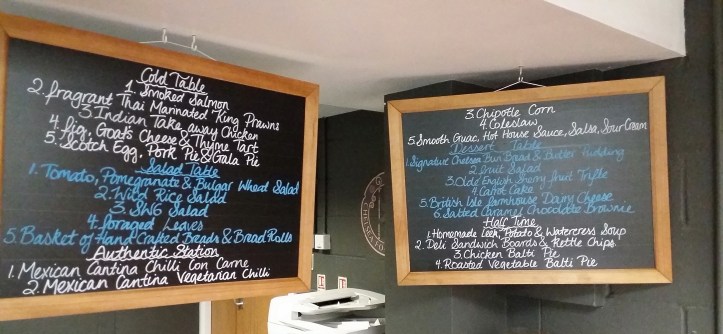 Cold Table
1. Smoked Salmon
2. Fragrant Thai Marinated King Prawns
3. Indian Take away Chicken
4. Fig, Goats Cheese & Thyme Tart
5. Scotch Egg, Pork Pie & Gala Pie
Salad Table
1. Tomato, Pomegranate & Bulgar Wheat Salad
2. Wild Rice Salad
3. SWG Salad
4. Foraged Leaves
5. Basket of Hand Crafted Breads & Bread Rolls
Authentic Station
1. Mexican Cantina Chilli Con Carne
2. Mexican Cantina Vegetarian Chilli
3. Chipotle Corn
4. Coleslaw
5. Smooth Guac, Hot House Sauce, Salsa, Sour Cream
Dessert Table
1. Signature Chelsea Bun Bread & Butter Pudding
2. Fruit Salad
3. Olde English Sherry Fruit Trifle
4. Carrot Cake
5. British Isle Farmhouse Dairy Cheese
6. Salted Caramel Chocolate Brownie
Half Time
1. Homemade Leek, Potato & Watercress Soup
2. Deli Sandwich Boards & Kettle Chips.
3. Chicken Balti Pie
4. Roasted Vegetable Balti Pie